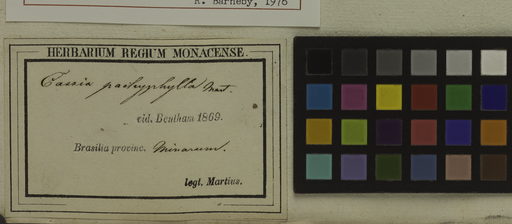 R. Barneby, 1976
HERBARIUM REGIUM MONACENSE.
Cassia pachyphylla Mart.
vid. Bentham 1869.
Brasilia provinc. Minarum.
legt. Martius.